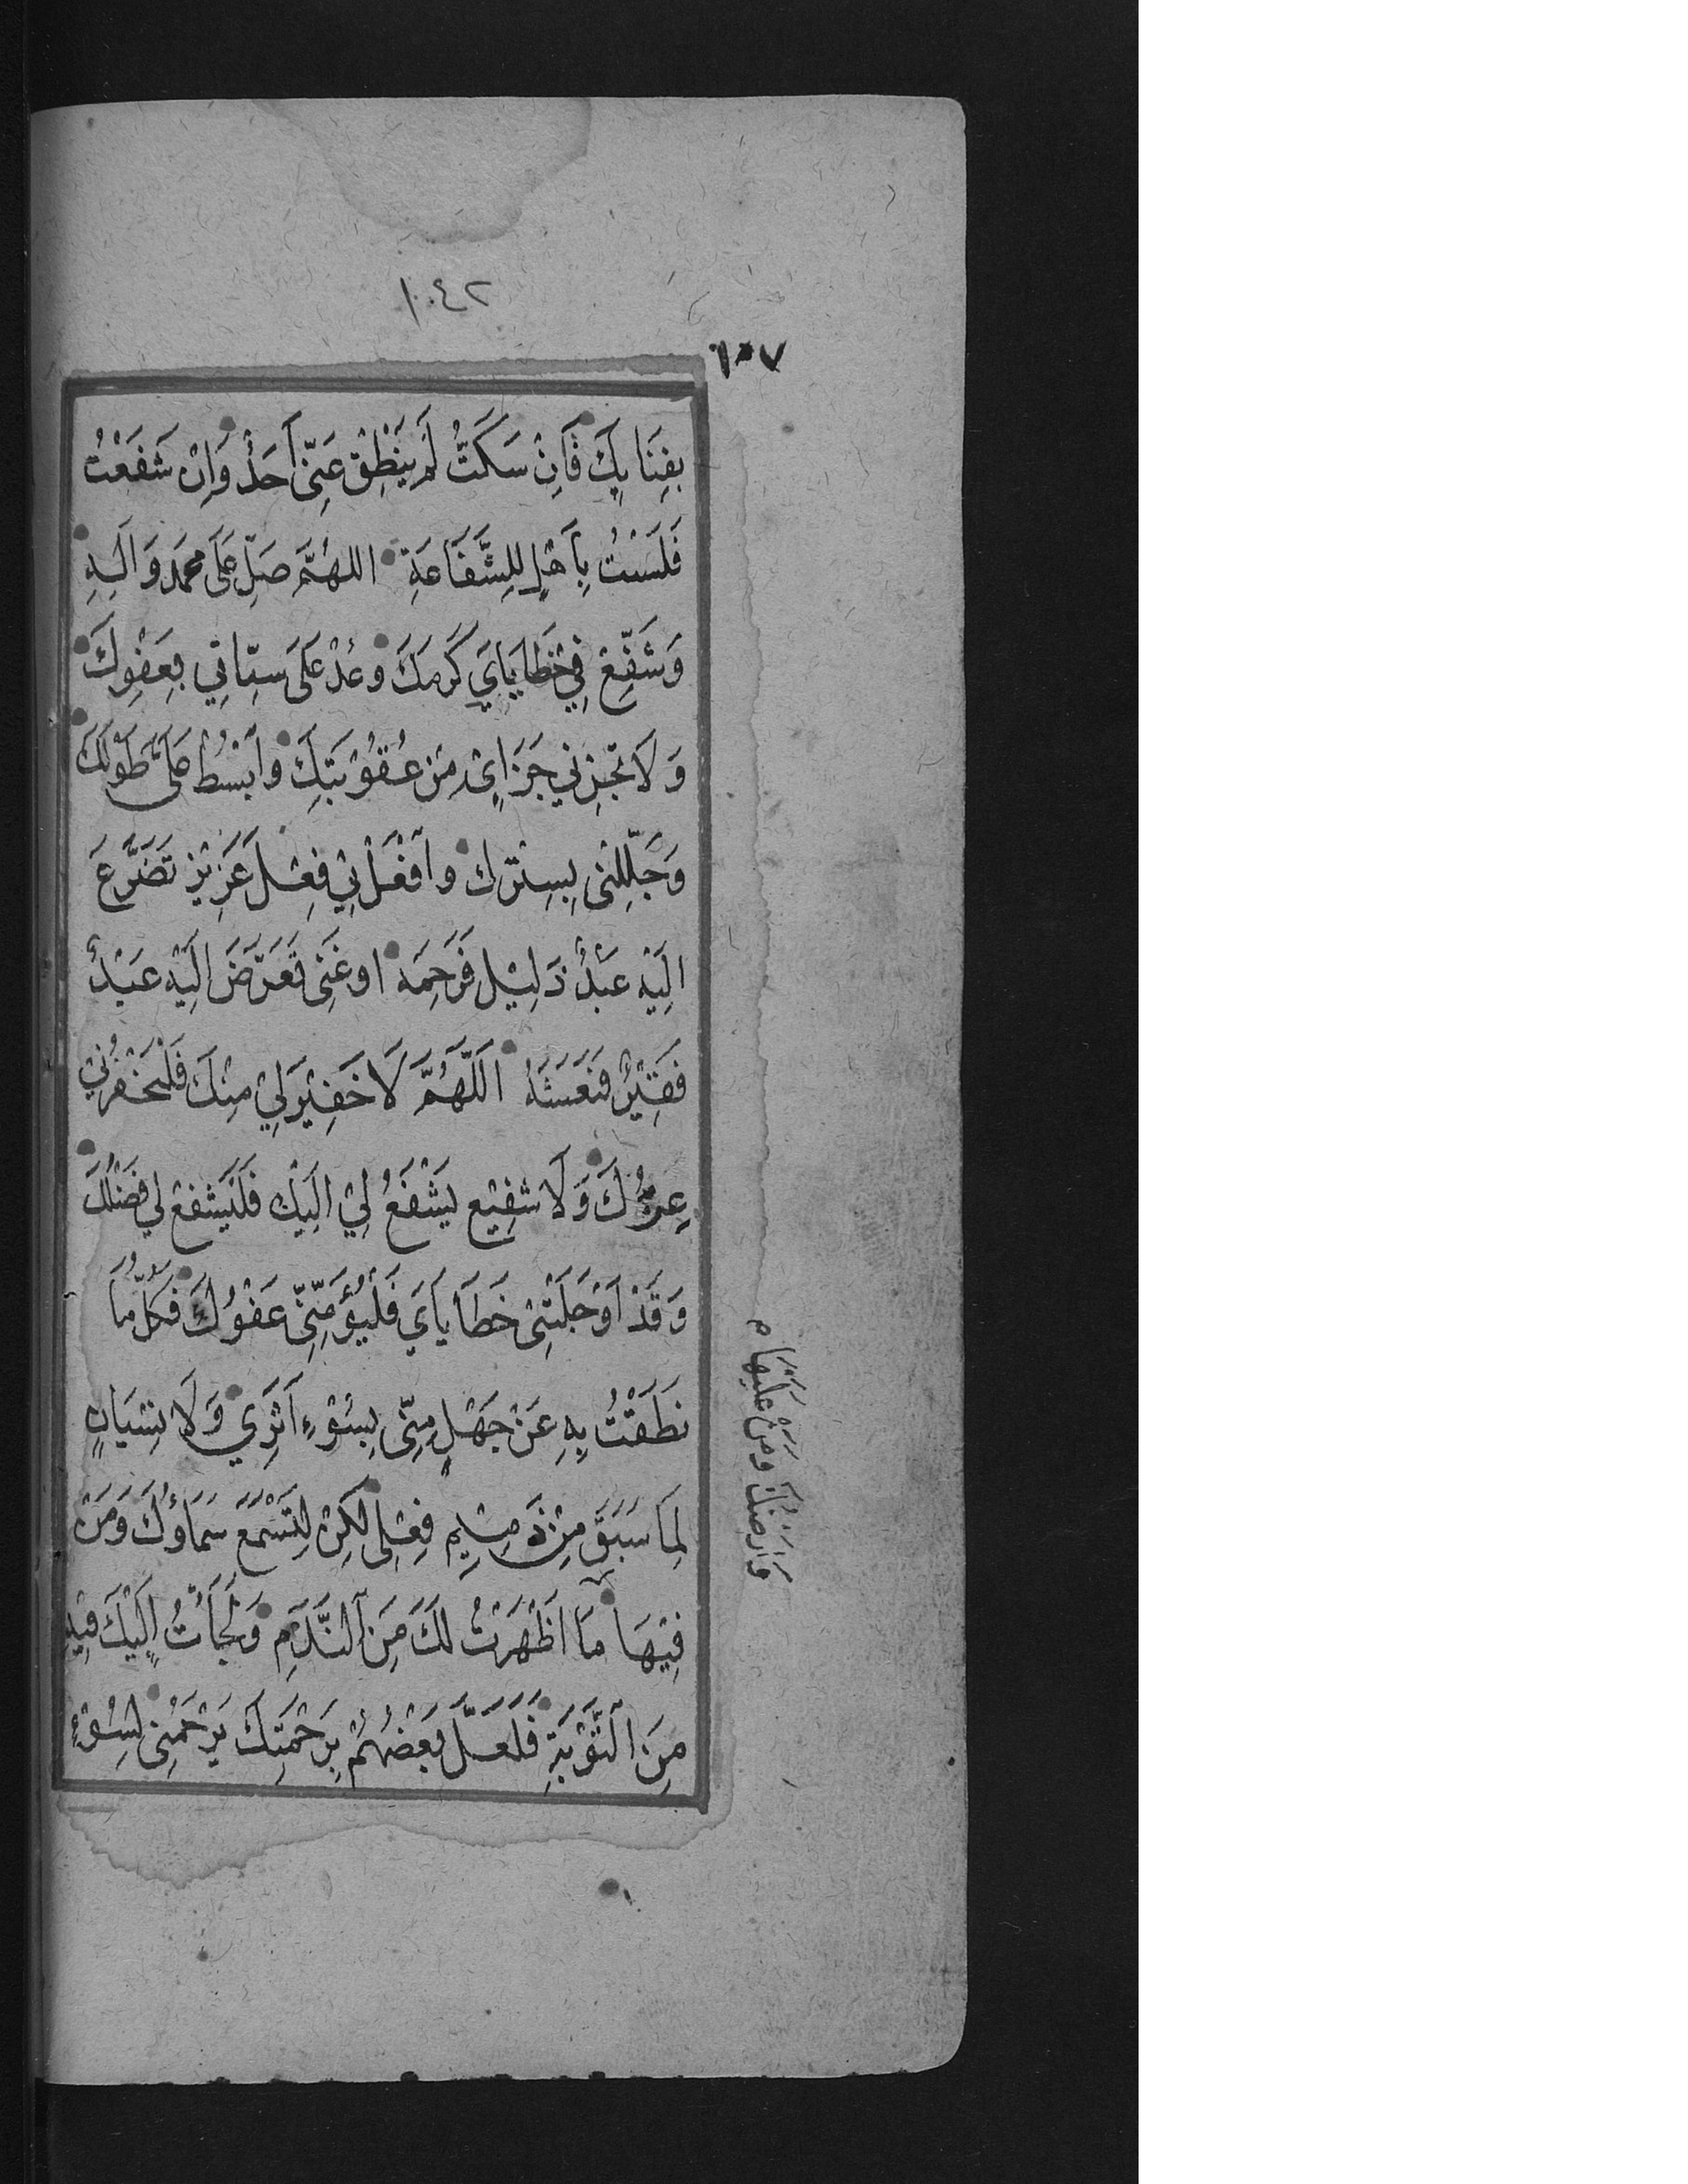 ١٠٤٢
١٠٧
بِفِنَايِكَ فَاِنْ سَكَتُّ لَمْ يَنْطِقْ عَنِّي اَحَدٌ وَاِنْ شَفَعْتُ
فَلَسْتُ بِاَهْلٍ لِلشَّفَاعَةِ اللهُمَّ صَلِّ عَلَى مُحَمَّد وَالِهِ
وَشَفِّعْ فِي خَطَايَايَ كَرَمَكَ وعُدْ عَلَى سَيِّاتِي بِعَفْوِكَ
وَلَا تَجْزِنِي جَزَايِىْ مِنْ عُقُوْبَتِكَ وابْسُطْ عَلَىَّ طَوْلَكَ
وَجَلِّلْنِى بِسِتْرِك وافْعَلْ بِيْ فِعْلَ عَزِيْزٍ تَضَرَّعَ
اِلَيْهِ عَبْدٌ ذَلِيْل فَرَحِمَه او غَنِى تَعَرَّضَ اِلَيْهِ عَبْدٌ
فَقِيْرٌ فَنَعَشَهُ اَللّٰهُمَّ لَا خَفِيْرَ لِيْ مِنْكَ فَلْيَخْفُرْنِيْ
عِزُّكَ وَلَا شَفِيْع يَشْفَعُ لِيْ اِلَيْكَ فَلْيَشْفَعْ لِي فَضْلُكَ
وَقَدْ اَوْجَلَتْنِىْ خَطَايَايَ فَلْيُؤْمِنِّىْ عَفْوُكَ فَكُلُّ مَا
نَطَقْتُ بِهِ عَنْ جَهْلٍ مِنِّى بِسُوْءِ اَثَرِي وَلَا نِسْيَانٍ
لِمَا سَبَقَ مِنْ ذَمِيْمِ فِعْلِى لٰكِنْ لِتَسْمَعَ سَمَاؤُكَ وَمَنْ
فِيْهَا مَا اَظْهَرْتُ لَكَ مِنَ النَّدَمِ وَلَجَاْتُ اِلَيْكَ فِيْهِ
مِنَ التَّوْبَةِ فَلَعَلَّ بَعْضَهُمْ بِرَحْمَتِكَ يَرْحَمُنِى لِسُوْءِ
وَاَرْضُكَ وَمَنْ عَلَيْهَا م